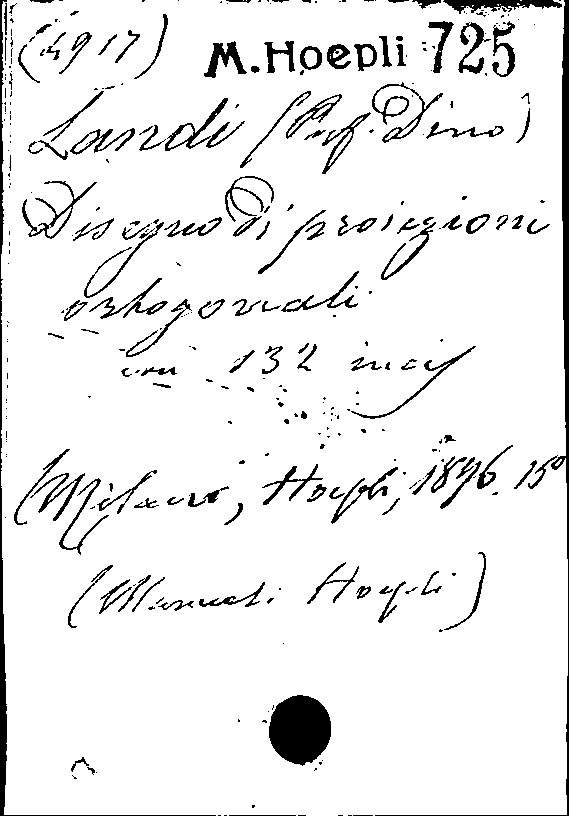 (4917) M. Hoepli 725
Landi (Prof. Dino)
Disegno di proiezioni
ortogonali
con 132 incis
Milano, Hoepli, 1896. 15°
(Manuali Hoepli)